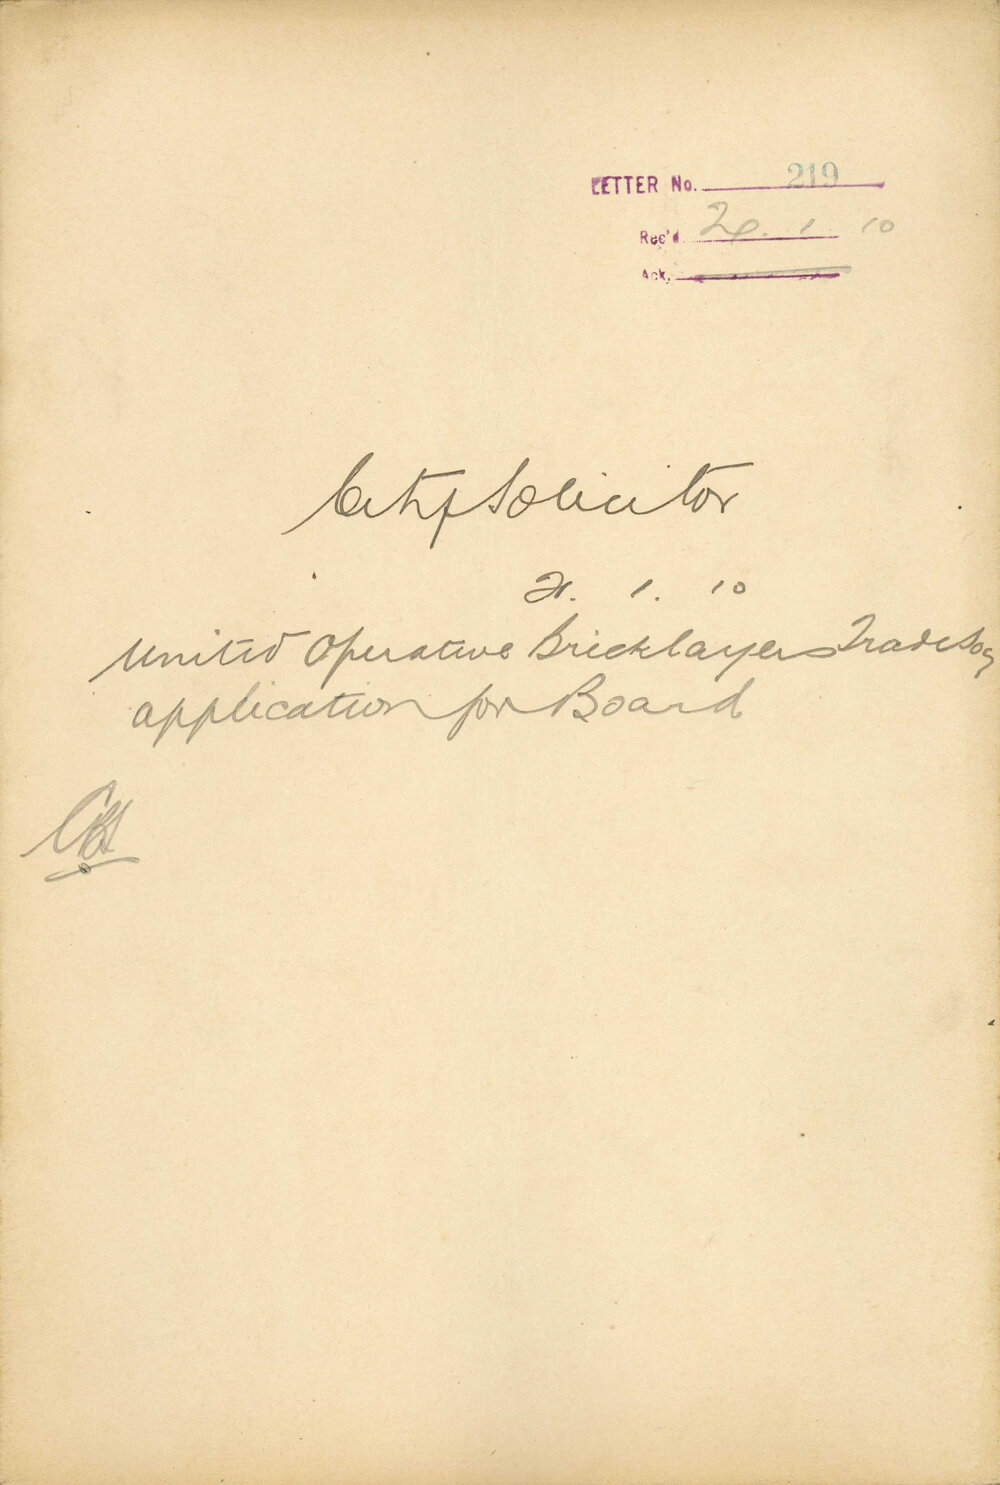 LETTER No. 219
Rec'd. 24. 1. 10
Ack.
City Solicitor
21. 1. 10
United Operative Bricklayers Trade Socy
application for Board